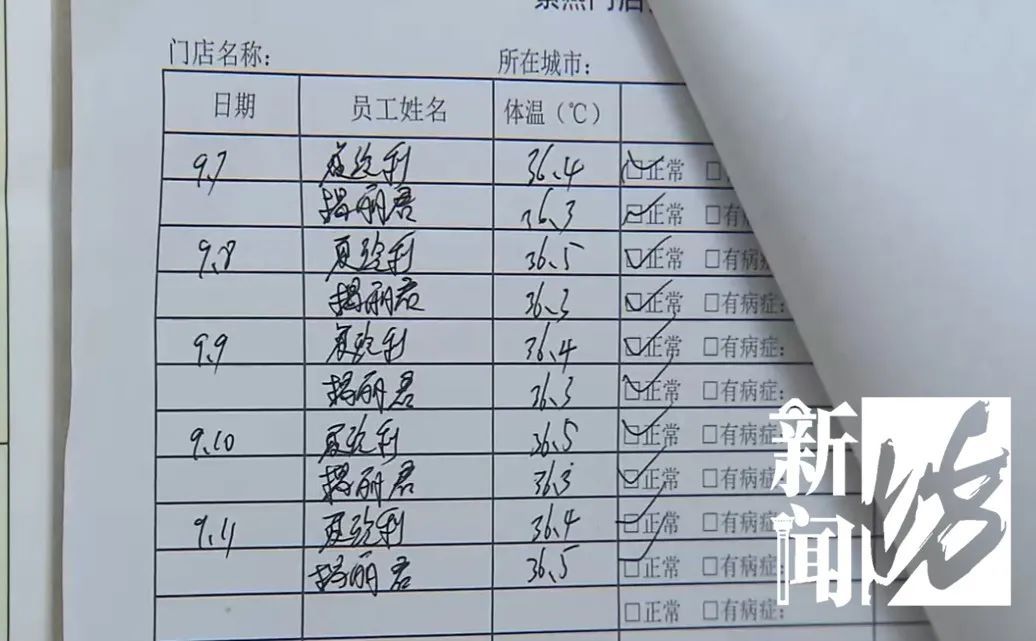 门店名称: 所在城市:
日期 员工姓名 体温(℃)
9.7 夏玲利 36.4 ☑正常 □有
杨丽君 36.3 ☑正常 □有病
9.8 夏玲利 36.5 ☑正常 □有病症
杨丽君 36.3 ☑正常 □有病症:
9.9 夏玲利 36.4 ☑正常 □有病症:
杨丽君 36.3 ☑正常 □有病症:
9.10 夏玲利 36.5 ☑正常 □有病症:
杨丽君 36.3 ☑正常 □有病症
9.11 夏玲利 36.4 ☑正常 □有病症
杨丽君 36.5 ☑正常 □有病症
□正常 □有病症:
新闻坊